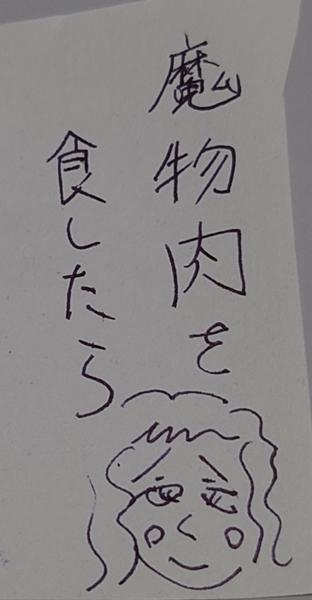 魔物肉を
食したら